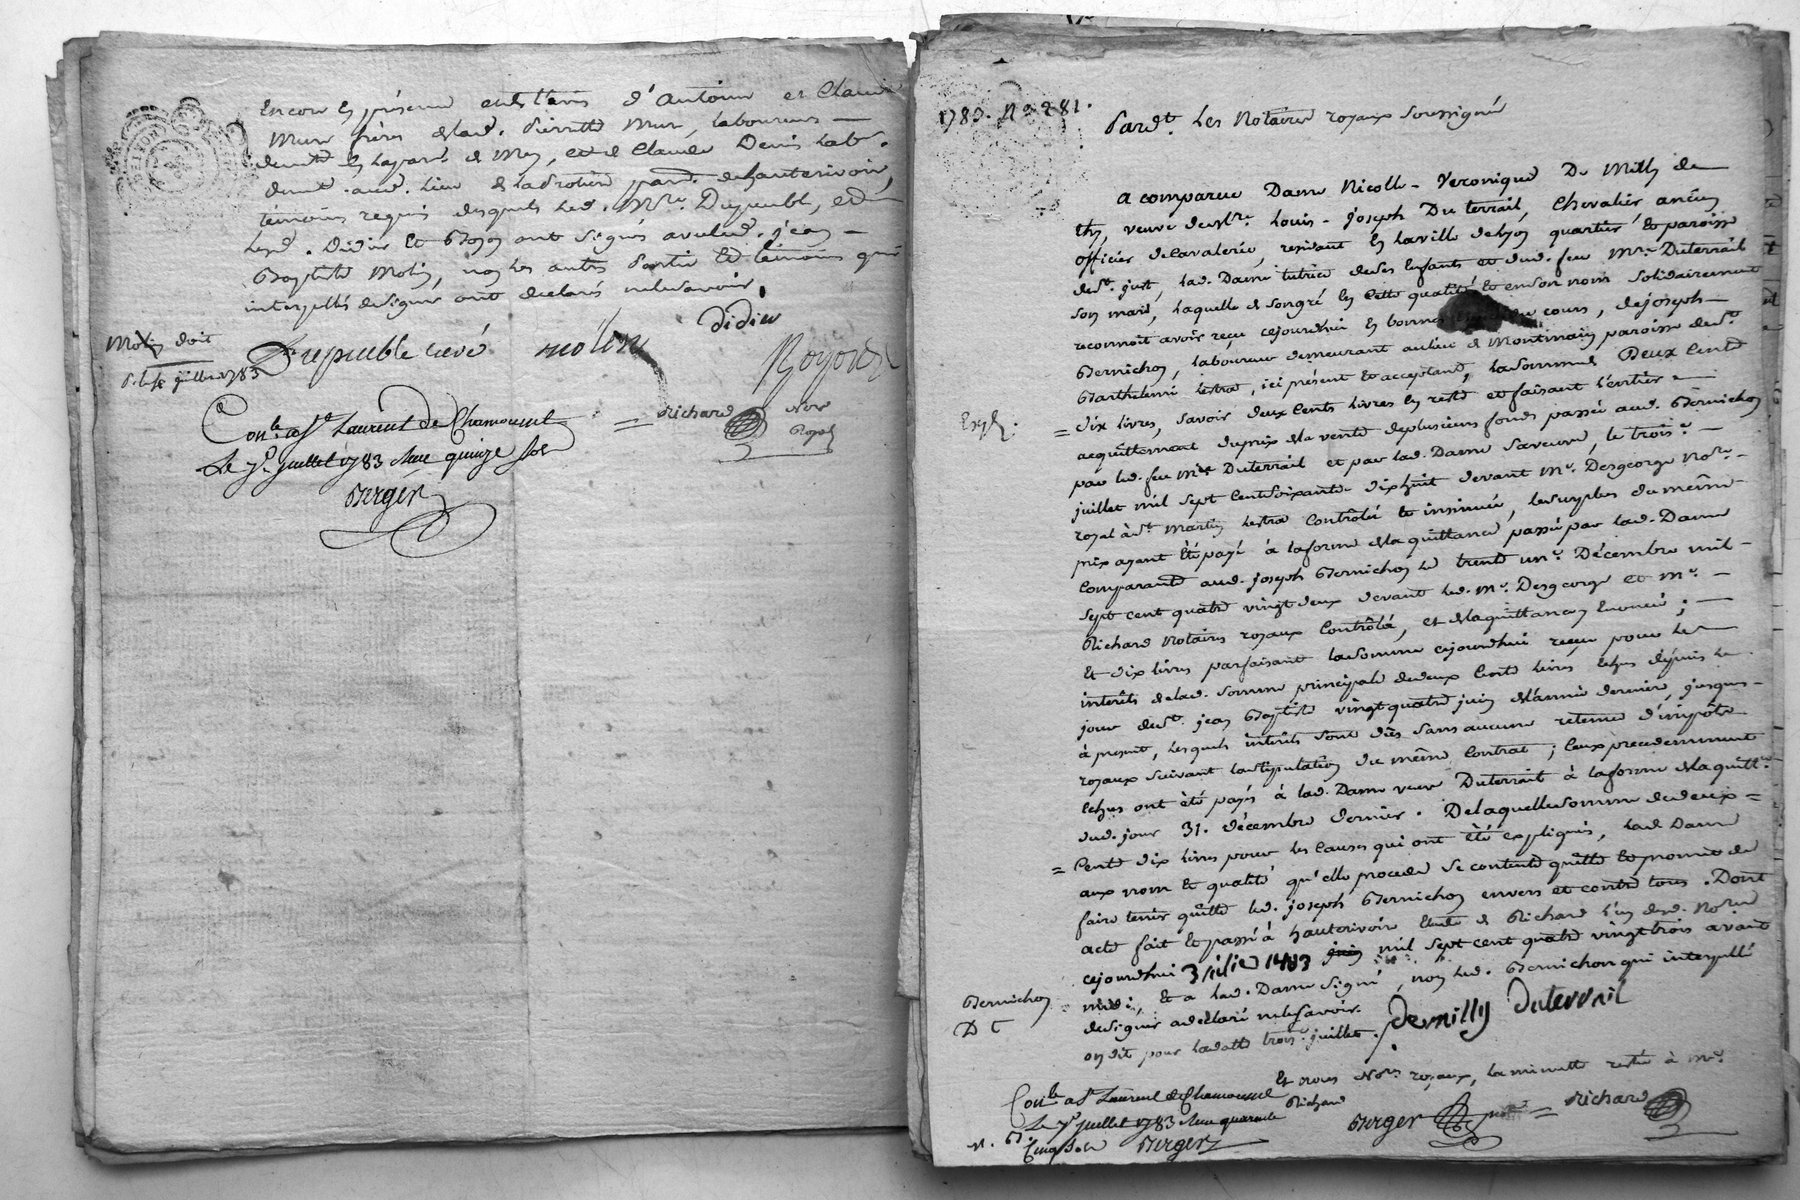 Encore en présence et de l'avis d'Antoine et Claude
Mure frères de lad. Pierrette Mure, laboureurs
demt. en la par. de et de Claude Denis lab.
demt. aud. lieu de paroisse de hauterivoire,
témoins requis desquels led. Mre. Dupeuble, et
led. Didier et Boyon ont signés avec led. jean
Baptiste Molin, non les autres parties et témoins qui
interpellés de signer ont déclarés ne le savoir.
didier
Dupeuble curé molin Boyon
Molin doit
juillet 1783
Conlé. a St. Laurent de Chamousset
Le 7e. juillet 1783 Reçu quinze sols
Berger
= Richard Nore
Royal
1783. No 281.
Pardt. Les Notaires royaux soussignés
A comparue Dame Nicolle-Veronique De Milly de
thy, veuve de Mre. Louis-joseph Du terrail, Chevalier ancien
officier de Cavalerie, residant en la ville de Lyon quartier et paroisse
de St. just, lad. Dame tutrice de ses Enfants et dud. feu Mre. Duterrail
son mari, laquelle de son gré en cette qualité et en son nom solidairement
reconnoit avoir reçu cejourdhui en bonnes cours, de joseph
Bernichon, laboureur demeurant au lieu de Montmain paroisse de St.
Barthelemi Lestra, ici présent et acceptant, la somme Deux Cents
dix livres, savoir deux cents livres en reste et faisant l'entier
Expe. = acquittement du prix de la vente de plusieurs fonds passée aud. Bernichon
par led. feu Mre Duterrail et par lad. Dame sa veuve, le troise.
juillet mil sept cent soixante dix huit devant Me. Desgeorge Nore.
royal à St. Martin Lestra Contrôlée et insinuée, le surplus du même
prix ayant été payé à la forme de la quittance passée par lad. Dame
comparante aud. joseph Bernichon le trente un. Décembre mil
sept cent quatre vingt deux devant led. Me. Desgeorge et Me.
Richard Notaires royaux Contrôlée, et de la quittance y énoncée;
Et dix livres parfaisant la somme cejourdhui reçue pour les
intérêts de lad. somme principale de deux Cents livres échus depuis le
jour de St. jean Baptiste vingt quatre juin de l'année dernière, jusques
à présent, lesquels intérêts sont dûs sans aucune retenue d'impôts
royaux suivant la stipulation du même Contrat; Ceux précédemment
échus ont été payés à lad. Dame veuve Duterrail à la forme de la quitte.
dud. jour 31. décembre dernier. De laquelle somme de deux =
= Cents dix livres pour les causes qui ont été expliquées, lad. Dame
aux nom et qualité qu'elle procede se contente quitte et promet de
faire tenir quitte led. joseph Bernichon envers et contre tous. Dont
acte fait et passé à hauterivoire étude de Richard l'un desd. Nores
cejourdhui 3 juin mil sept cent quatre vingt trois avant
midi, et a lad. Dame signé, non led. Bernichon qui interpellé
de signer a déclaré ne le savoir.
Bernichon
D C
on dit pour la datte trois. juillet. Demilly Duterrail
Et nous Nores royaux, la minutte restée à Me.
Richard
Conlé a St. Laurent de Chamousset
Le 7e juillet 1783 Reçu quarante
Cinq sols Berger
Berger = Richard